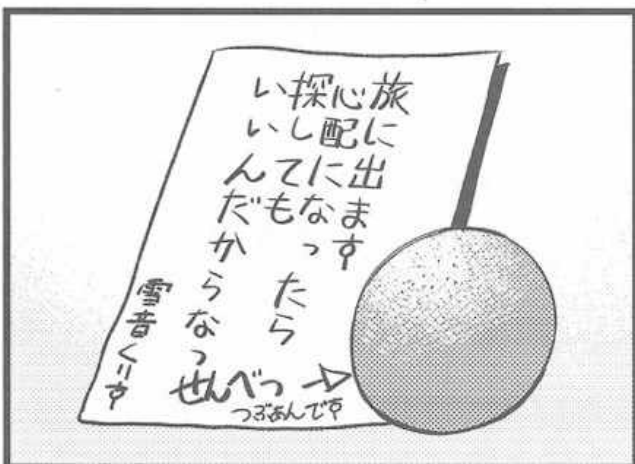 旅に出ます
心配になったら
探しても
いいんだからなっ
雪音くりす
せんべつ→
つぶあんです